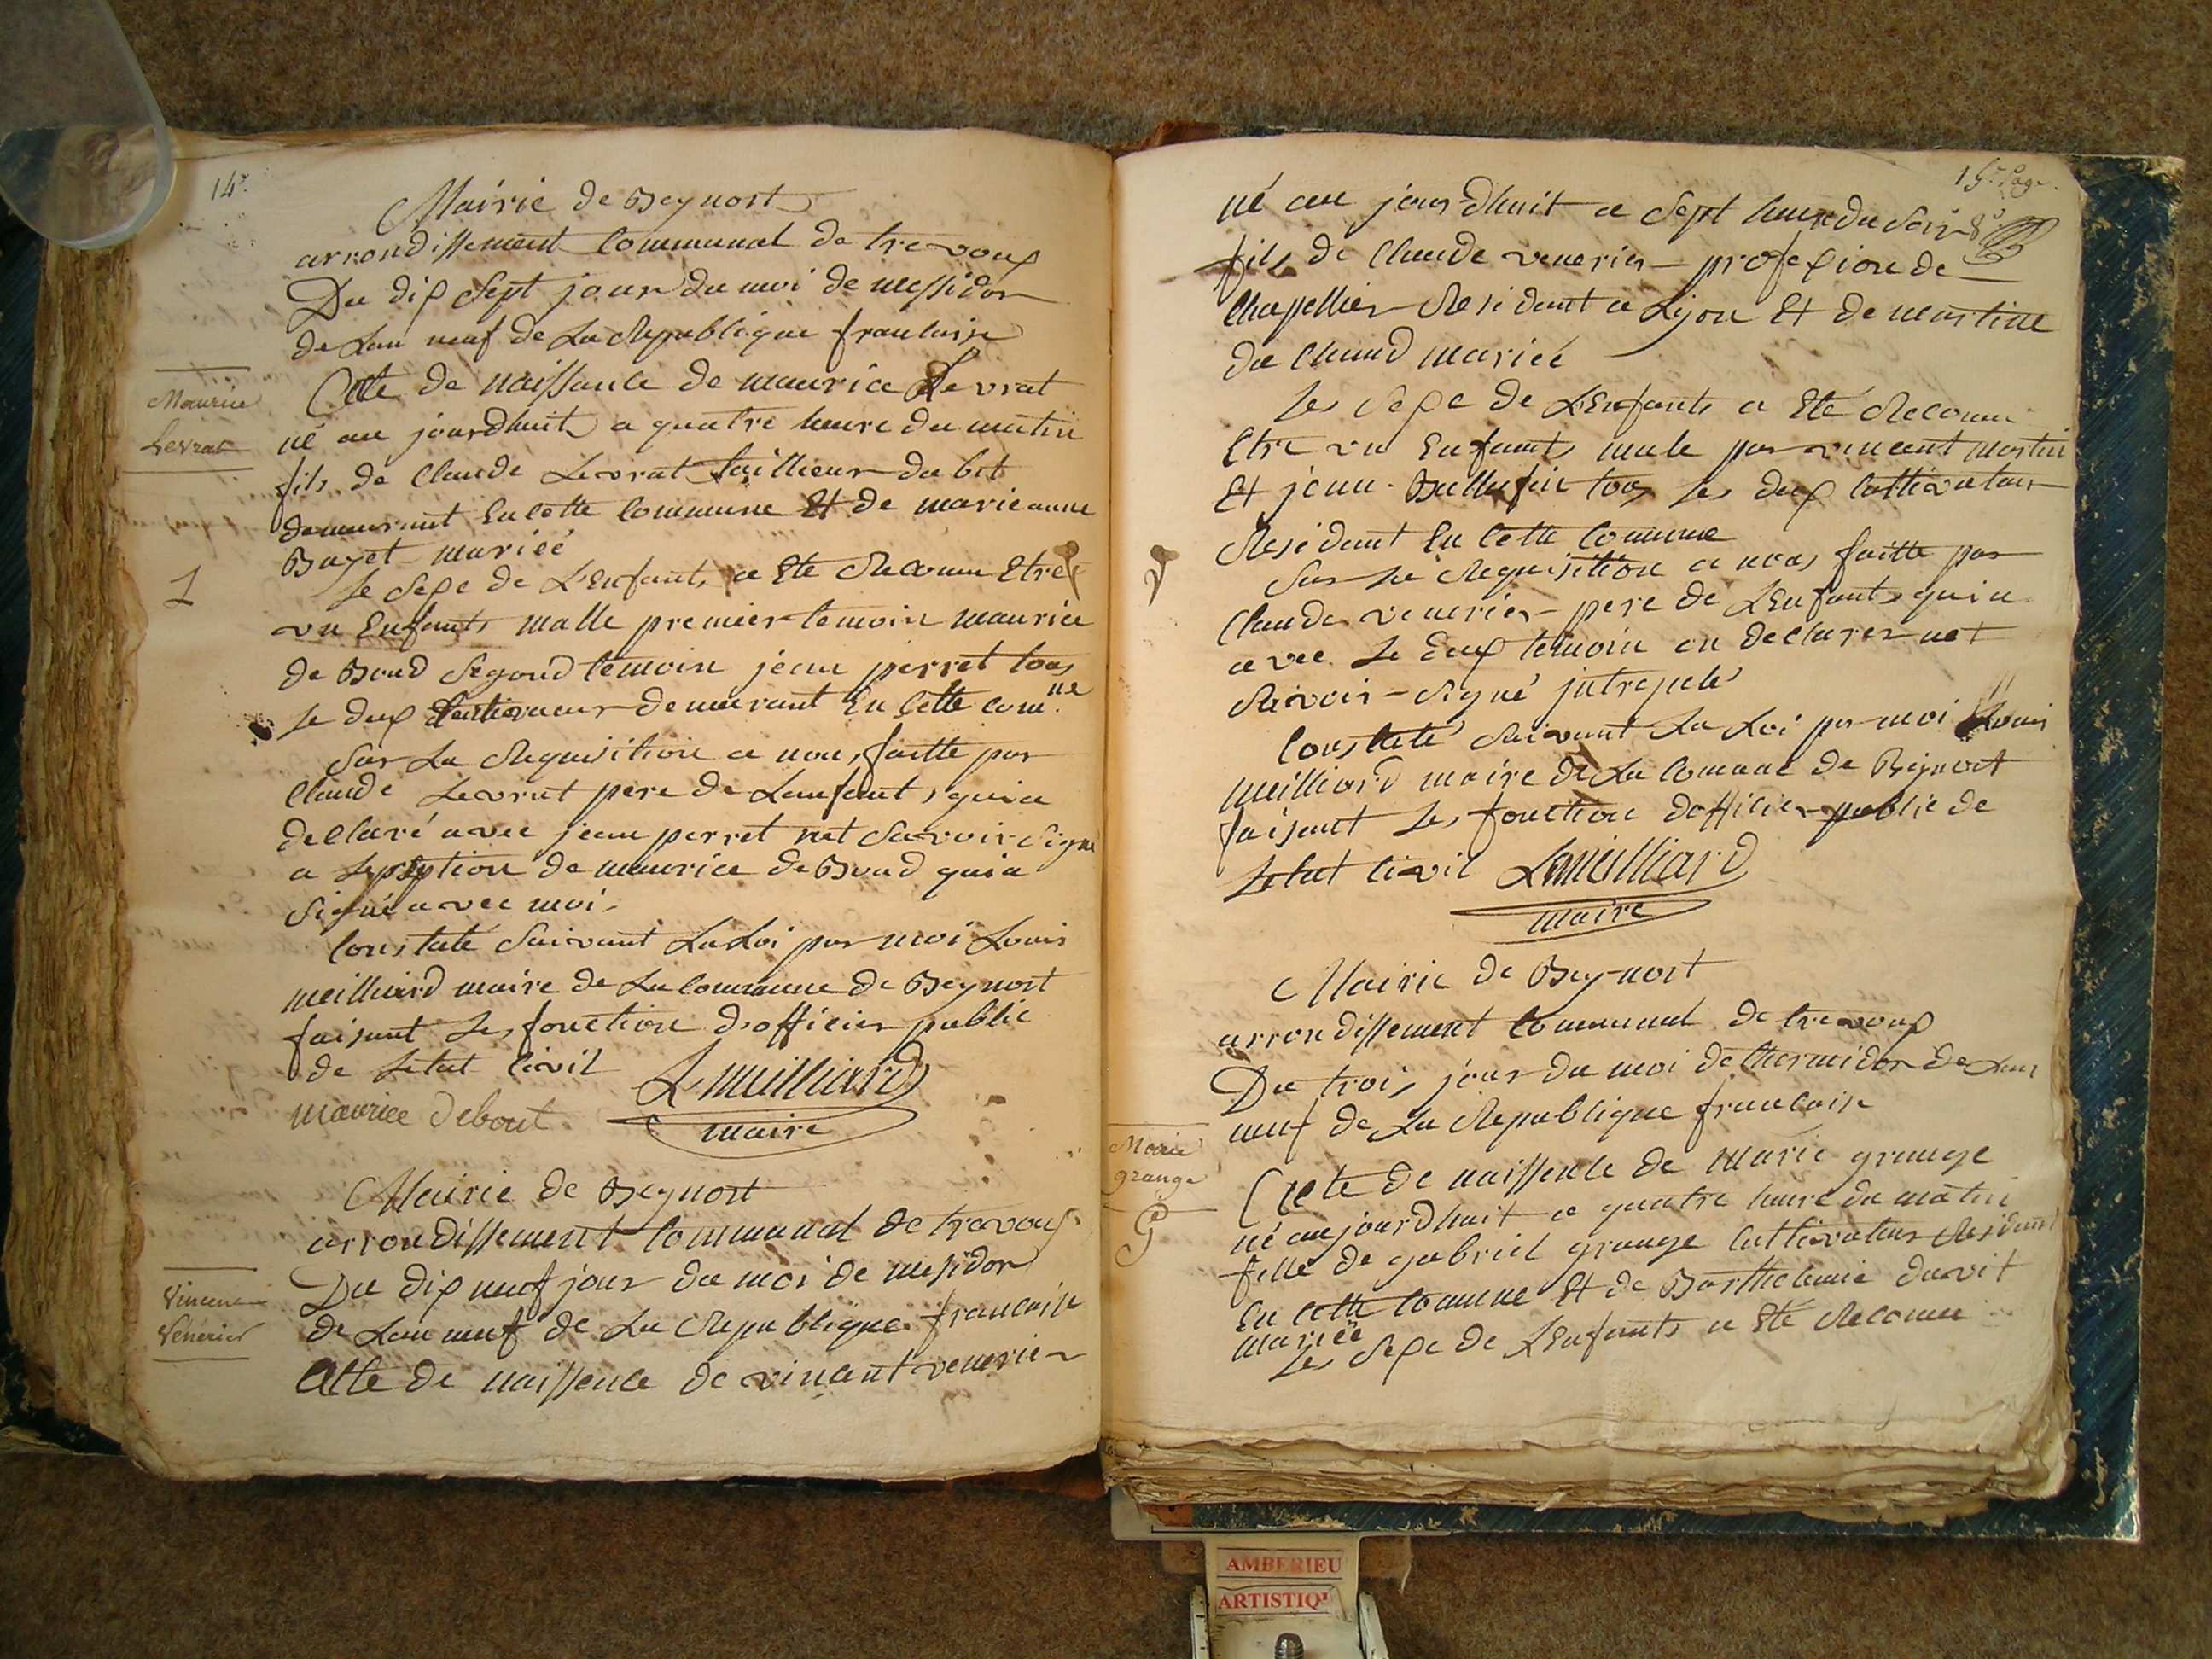 14e.
Mairie de Beynost
arrondissement Communal de trevoux
Du dix Sept jour du moi de messidor
de Lan neuf de La Republique francaise
Maurice
Levrat
Acte de naissance de maurice Levrat
né au jourdhuit a quatre heure du matin
fils de Claude Levrat tailleur dabit
demeurant En Cette Commune Et de marie anne
Bayet mariéé
1
Le Sexe de L'Enfants a Ete Reconu Etre
un Enfants malle premier temoin maurice
de Boud Segond temoin jean perret tous
Le deux demeurant En Cette com.ne
Sur La Requisition a nous faitte par
Claude Levrat pere de Lenfant, qui a
declaré avec jean perret net Savoir Signé
a Lepsption de maurice de Boud qui a
Signé avec moi
Constaté Suivant La Loi par moi Louis
meilliard maire de La Commune de Beynost
faisant Les fonction d'officier public
de Letat Civil
L meilliard
maire
maurice debout
Mairie de Beynost
arrondissement Communal de trevoux
Du dix neuf jour du moi de mesidor
de Lan neuf de La Republique francaise
Vincent
Venerier
Acte de naissence de vincant venerier
15e Page.
né au jourdhuit a Sept heure du Soir
fils de Claude venerier profexion de
Chapellier Resident a Lyon Et de martine
du Chaud mariéé
Les Sexe de L'Enfants a Eté Reconu
Etre un Enfants male par vincent martin
Et jean tous Les deux Cultivateur
Resident En Cette Commune
Sur La Requisition a nous faitte par
Claude venerier pere de L'Enfants qui a
avec Le deux temoin on declarer net
Savoir Signé jntrepelé
Constaté Suivant La Loi par moi Louis
meilliard maire de La Comune de Beynost
faisant Les fonction dofficier public de
Letat Civil L meilliard
maire
Mairie de Beynost
arrondissement Communal de trevoux
Du trois jour du moi de thermidor de Lan
neuf de La Republique francaise
Marie
grange
Acte de naissence de Marie grange
né aujourdhuit a quatre heure du matin
fille de gabriel grange Cultivateur Resident
En Cette Comune Et de Barthelemie
mariéé
Les Sexe de L'Enfants a Eté Reconu
AMBERIEU
ARTISTIQU